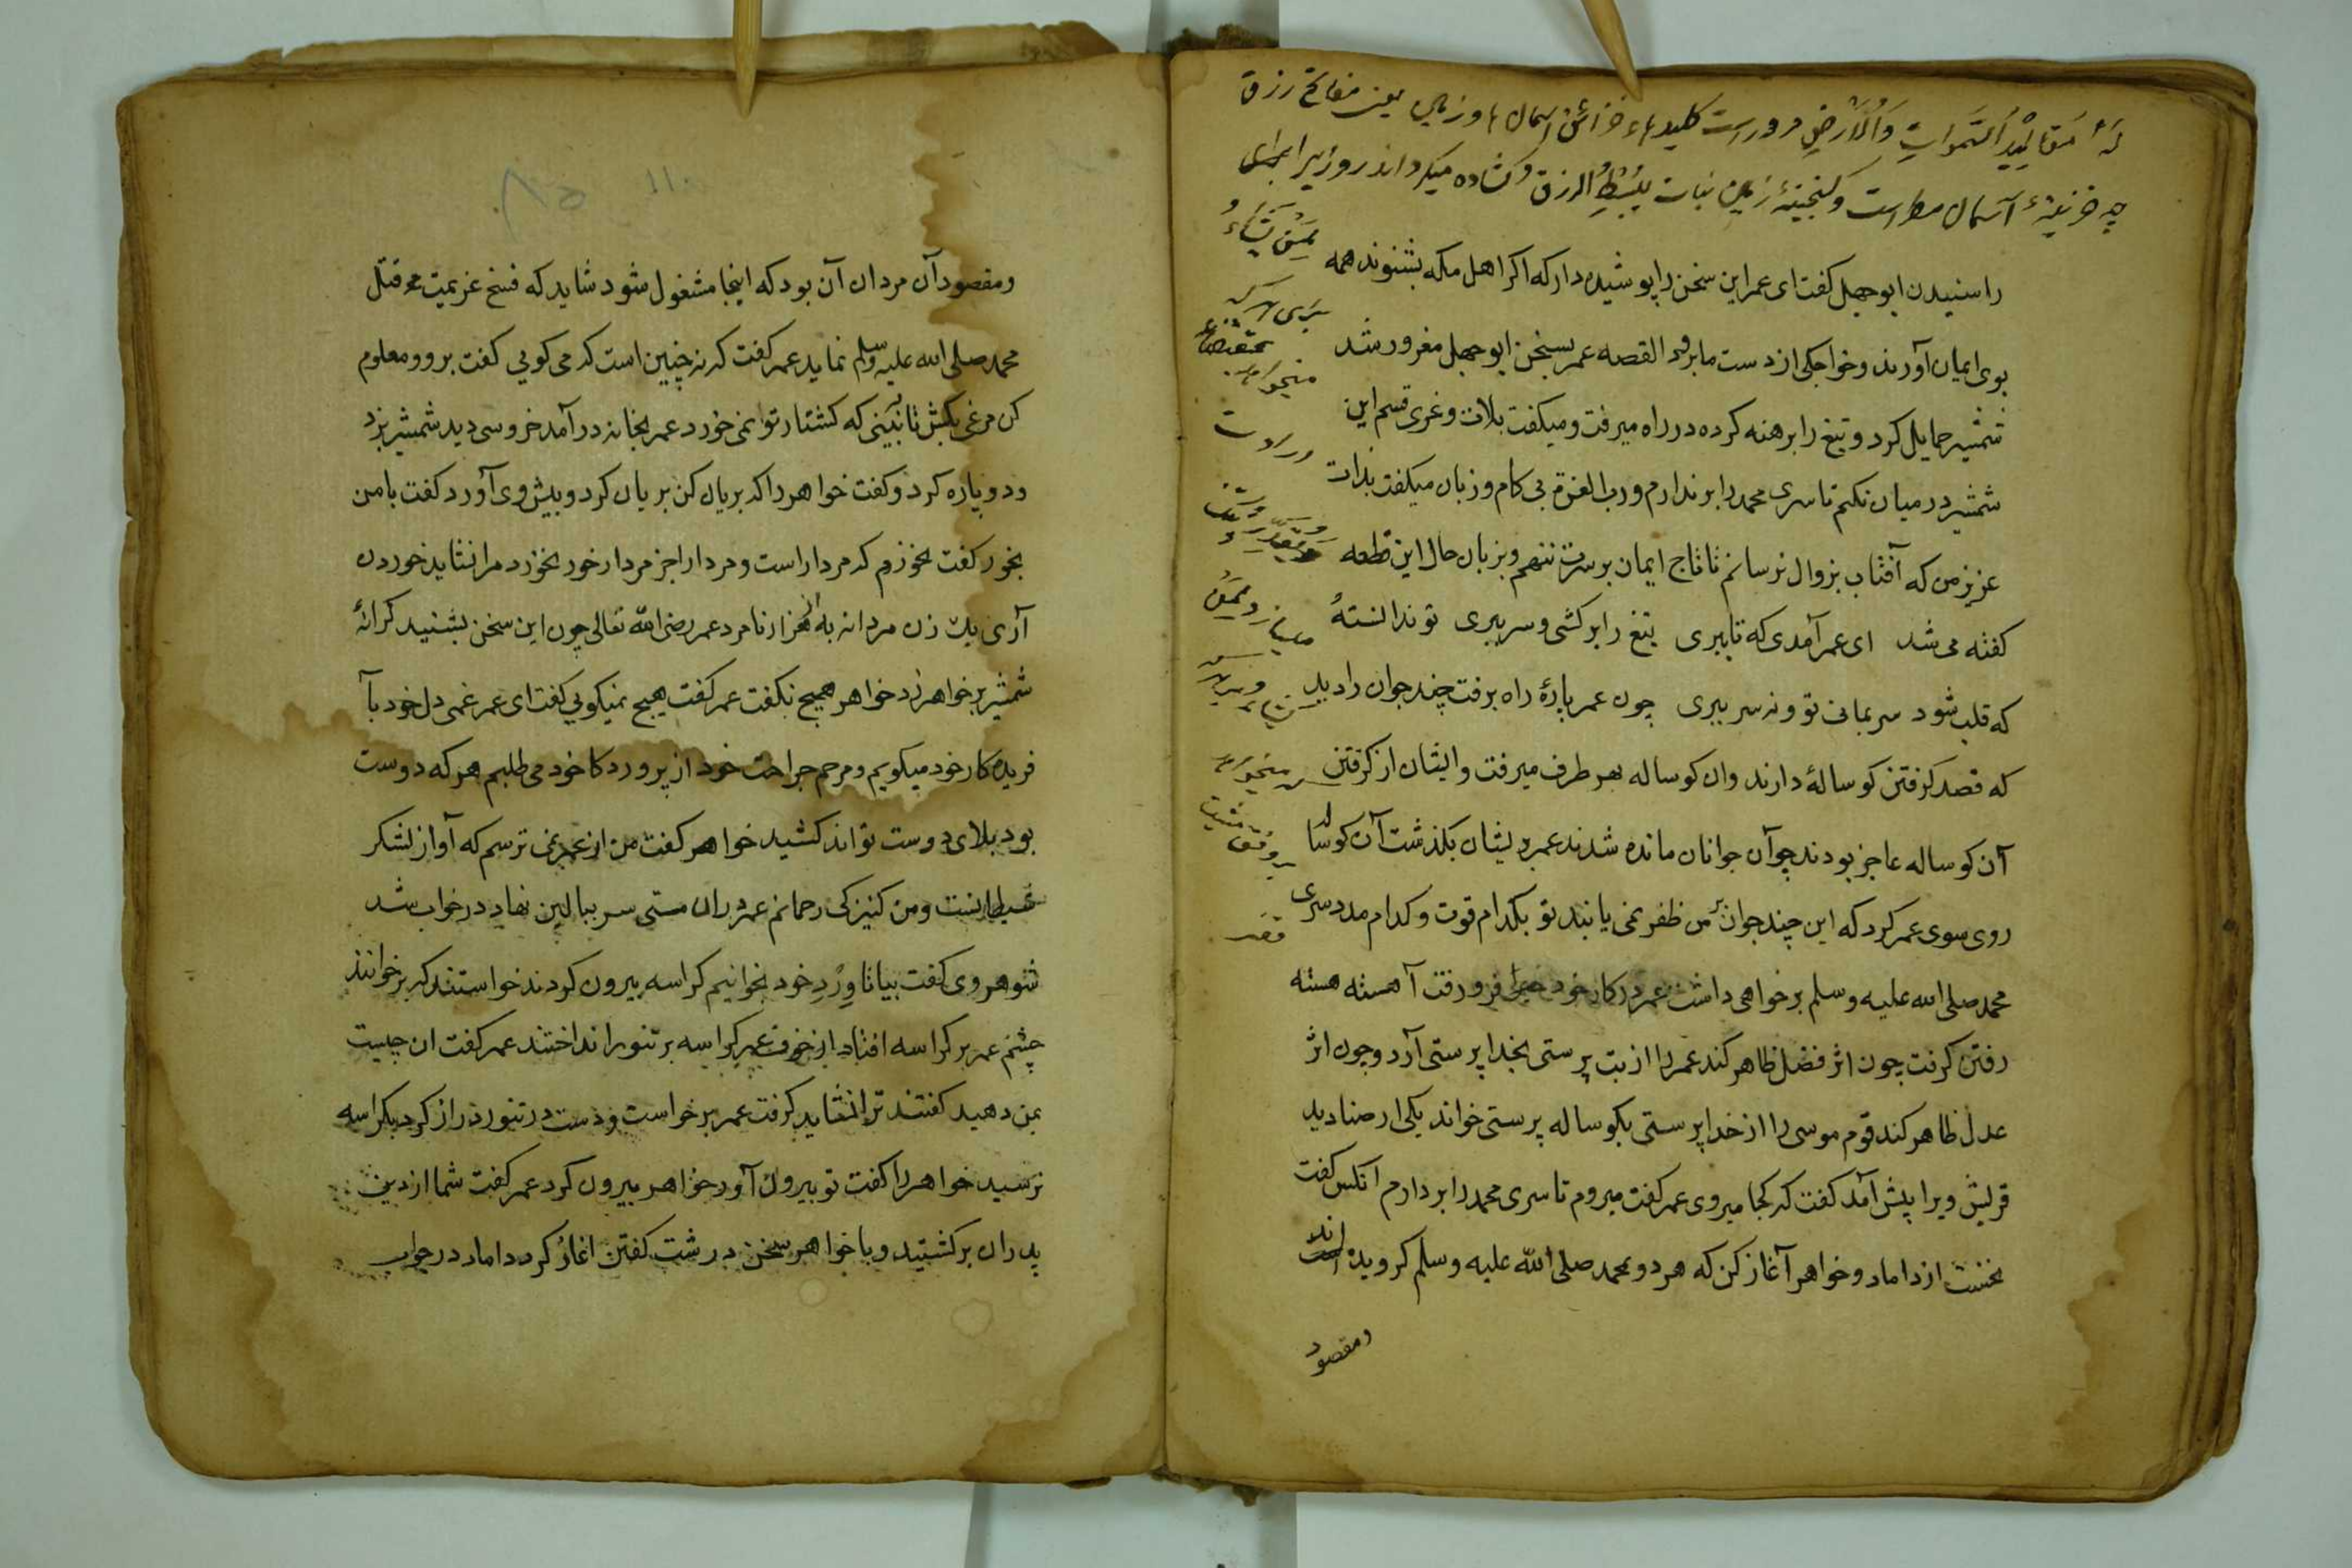 لَهُ مَقَالِيدُ السَّمَوَاتِ وَالْاَرْضِ مروراست کلیدهاء خزائن اسمان ها وزمین یعنی مفاتح رزق
چه خزینهٔ آسمان مطراست وکنجینهٔ زمین نبات یَبْسُطُ الرزق کشاده میکرداند روزیرا برای
لِمَنْ يَّشَاءُ
برای هرکه
میخواهد
وَيَقْدِرُ
میسازد
هرکه میخواهد
را سنیدن ابوجهل کفت ای عمر این سخن را پوشیده دار که اکر اهل مکه بشنوند همه
بوی ایمان آورند وخواجکی از دست ما برود القصه عمر بسخن ابوجهل مغرور شد
شمشیر حمایل کرد و تیغ را برهنه کرده در راه میرفت ومیکفت بلات وعزی قسم این
شمشیر در میان نکنم تا سری محمد را بر ندارم ورب العزة بی کام وزبان میکفت بذات
عزیز من که آفتاب بزوال نرسانم تا تاج ایمان بر سرت ننهم وبزبان حال این قطعه
کفته می شد ای عمر آمدی که تا ببری تیغ را برکشی وسر ببری تو ندانستهٔ
که قلب شود سر بمانی تو ونه سر ببری چون عمر پارهٔ راه برفت چند جوان را دید
که قصد کرفتن کوسالهٔ دارند وان کوساله بهر طرف میرفت وایشان از کرفتن
آن کوساله عاجز بودند چو آن جوانان مانده شدند عمر بر ایشان بکذشت آن کوساله
روی سوی عمر کرد که این چند جوان بر من ظفر نمی یابند تو بکدام قوت وکدام مدد سری
محمد صلی الله علیه وسلم بر خواهی داشت عمر در کار خود حیران فرو رفت آهسته هسته
رفتن کرفت چون اثر فضل ظاهر کند عمر را از بت پرستی بخدا پرستی آرد وچون اثر
عدل ظاهر کند قوم موسی را از خدا پرستی بکوساله پرستی خواند یکی از صنادید
قریش ویرا پیش آمد کفت که کجا میروی عمر کفت میروم تا سری محمد را بردارم انکس کفت
نخست از داماد وخواهر آغاز کن که هردو بمحمد صلی الله علیه وسلم کرویده اند
ومقصود
۱۱۰
ومقصود آن مردان آن بود که اینجا مشغول شود شاید که فسخ عزیمت قتل
محمد صلی الله علیه وسلم نماید عمر کفت که نه چنین است که می کویی کفت برو ومعلوم
کن مرغی بکش تا ببینی که کشتار تو نمی خورد عمر بخانه در آمد خروسی دید شمشیر بزد
ودو پاره کرد وکفت خواهر را که بریان کن بریان کرد وپیش وی آورد کفت با من
بخور کفت نخورم که مردار است ومردار را جز مردار خور نخورد مرا نشاید خوردن
آری یک زن مردانه به از هزار نامرد عمر رضی الله تعالی چون این سخن بشنید کرانهٔ
شمشیر بر خواهر زد خواهر هیچ نکفت عمر کفت هیچ نمیکویی کفت ای عمر غمی دل خود با
فریده کار خود میکویم ومرحم جراحت خود از پرورد کار خود می طلبم هر که دوست
بود بلای دوست تواند کشید خواهر کفت من از عمر نمی ترسم که آواز لشکر
شیطانست ومن کنیزکی رحمانم عمر دران مستی سر ببالین نهاد در خواب شد
شوهر وی کفت بیا تا وِرْدِ خود بخوانیم کراسه بیرون کردند خواستند که بر خوانند
چشم عمر بر کراسه افتاد از خوف عمر کراسه بر تنور انداختند عمر کفت ان چیست
بمن دهید کفتند ترا نشاید کرفت عمر برخواست ودست در تنور دراز کرد بکراسه
نرسید خواهر را کفت تو بیرون آور خواهر بیرون کرد عمر کفت شما از دین
پدران برکشتید وبا خواهر سخن درشت کفتن اغاز کرد داماد در جواب